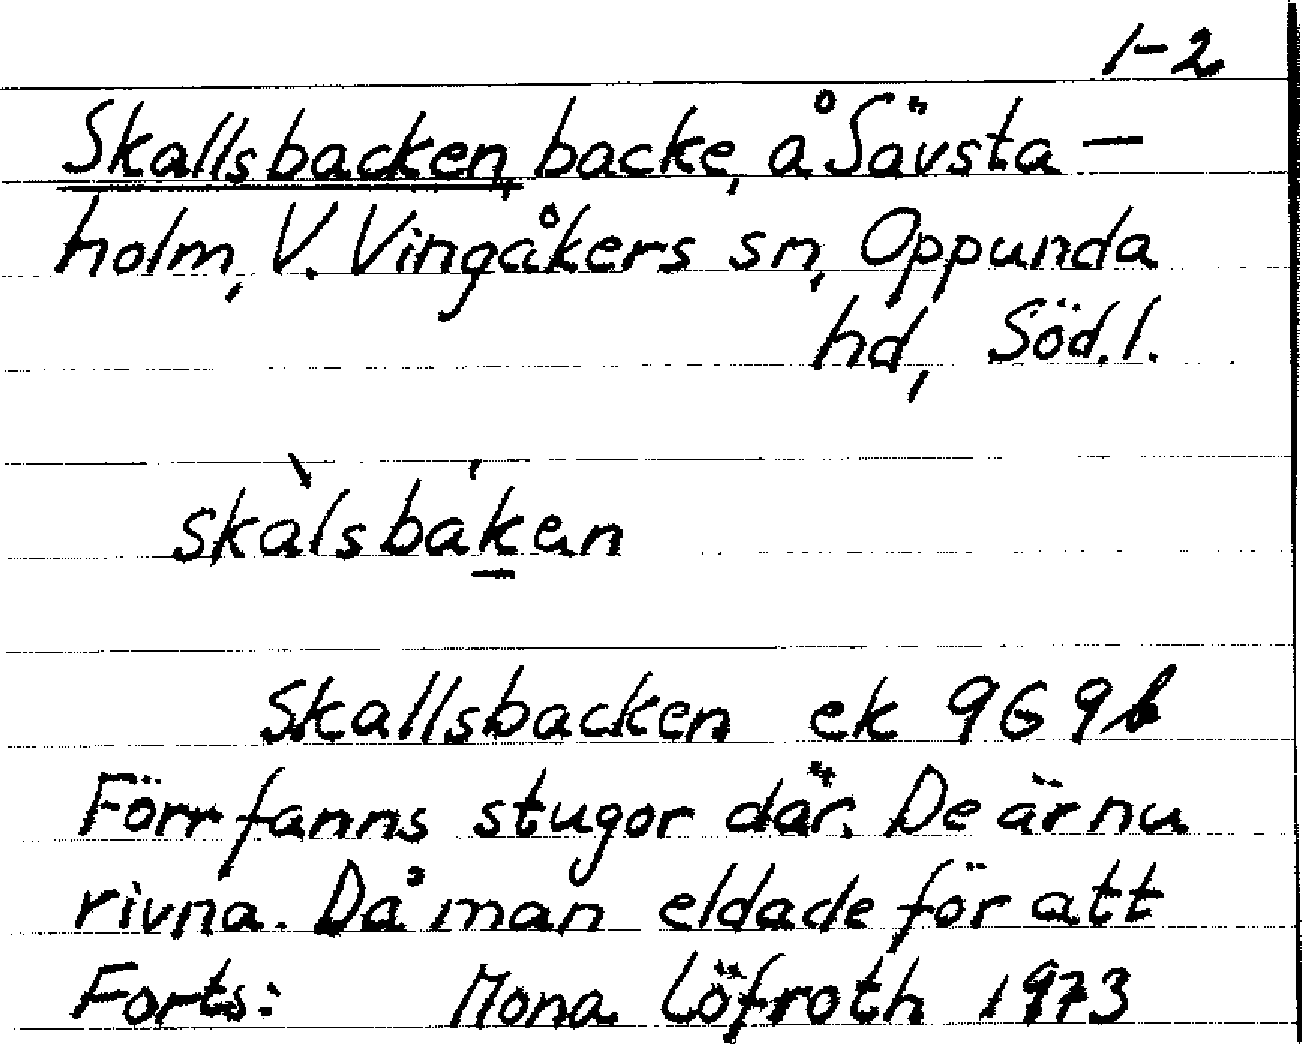 1-2
Skallsbacken, backe, å Sävsta-
holm, V. Vingåkers sn, Oppunda
hd, Söd.l.
skàlsbákan
Skallsbacken ek 9G9b
Förr fanns stugor där. De är nu
rivna. Då man eldade för att
Forts: Mona Löfroth 1973